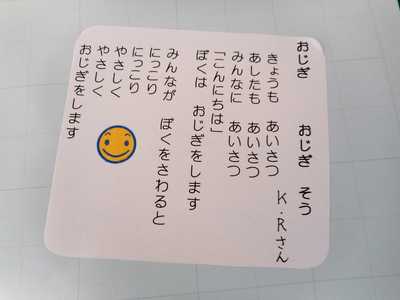 おじぎ　　おじぎ　そう
K.Rさん
きょうも　あいさつ
あしたも　あいさつ
みんなに　あいさつ
「こんにちは」
ぼくは　おじぎをします
みんなが　ぼくをさわると
にっこり
にっこり
やさしく
やさしく
おじぎをします